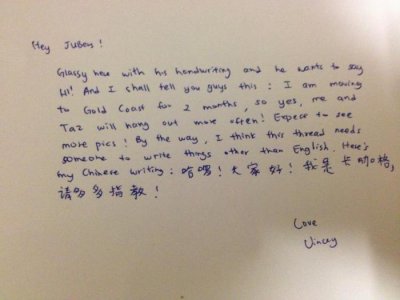 Hey JUBees!
Glassy here with his handwriting and he wants to say
Hi! And I shall tell you guys this: I am moving
to Gold Coast for 2 months, so yes, me and
Taz will hang out more often! Expect to see
more pics! By the way, I think this thread needs
someone to write things other than English. Here's
my Chinese writing: 哈啰! 大家好! 我是卡加格,
请多多指教!
Love
Vincey